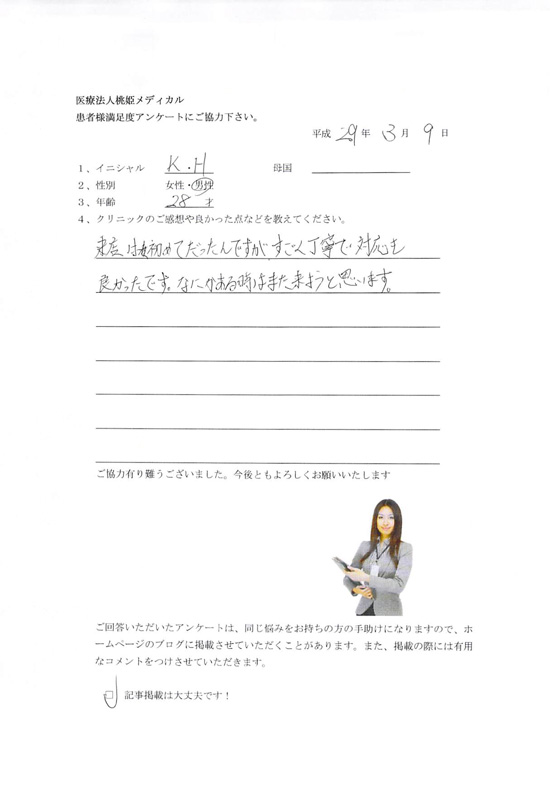 医療法人桃姫メディカル
患者様満足度アンケートにご協力下さい。
平成 29 年 3 月 9 日
1、イニシャル K.H 母国
2、性別 女性・男性
3、年齢 28 才
4、クリニックのご感想や良かった点などを教えてください。
来店は初めてだったんですが、すごく丁寧で対応も
良かったです。なにかある時はまた来ようと思います。
ご協力有り難うございました。今後ともよろしくお願いいたします
ご回答いただいたアンケートは、同じ悩みをお持ちの方の手助けになりますので、ホ
ームページのブログに掲載させていただくことがあります。また、掲載の際には有用
なコメントをつけさせていただきます。
□ 記事掲載は大丈夫です！